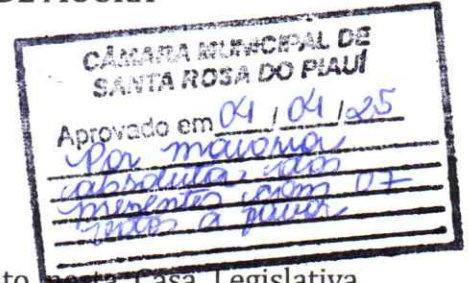 CÂMARA MUNICIPAL DE
SANTA ROSA DO PIAUÍ
Aprovado em 04 / 04 / 25
Por maioria
absoluta dos
presentes com 07
votos a favor
nesta Casa Legislativa